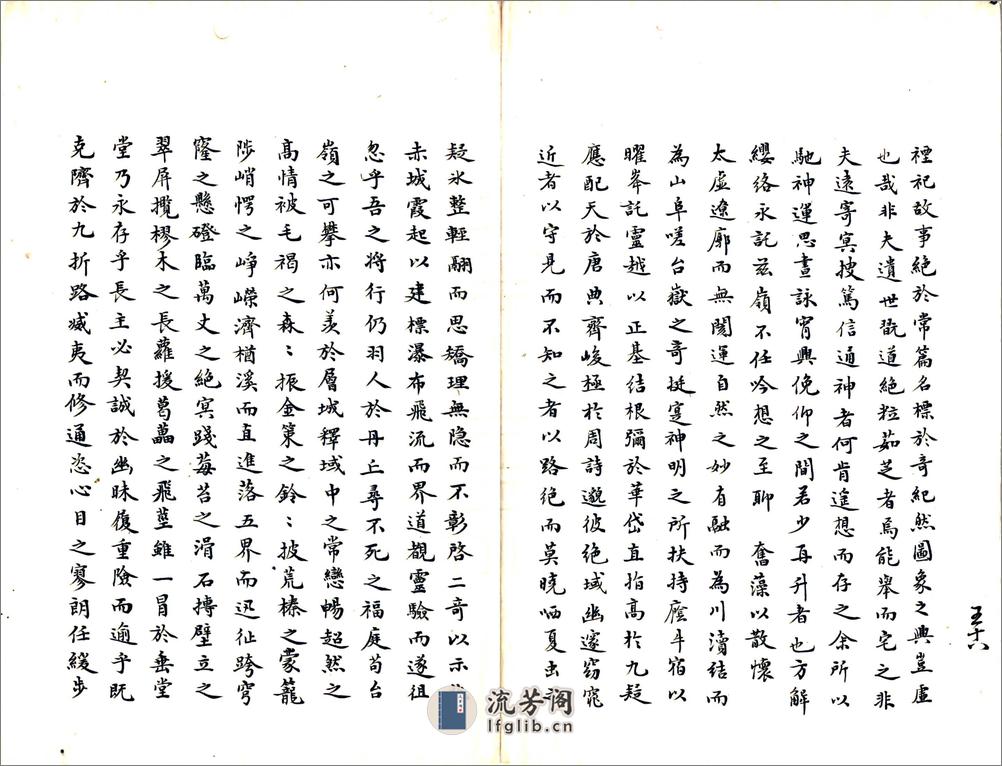 五十八
禋祀故事絕於常篇名標於奇紀然圖象之興豈虛
也哉非夫遺世翫道絕粒茹芝者烏能舉而宅之非
夫遠寄冥搜篤信通神者何肯遙想而存之余所以
馳神運思晝詠宵興俛仰之間若少再升者也方解
纓絡永託茲嶺不任吟想之至聊 奮藻以散懷
太虛遼廓而無閡運自然之妙有融而為川瀆結而
為山阜嗟台嶽之奇挺寔神明之所扶持廕斗宿以
曜峯託靈越以正基結根彌於華岱直指高於九疑
應配天於唐典齊峻極於周詩邈彼絕域幽邃窈窕
近者以守見而不知之者以路絕而莫曉哂夏虫
疑氷整輕翮而思矯理無隐而不彰啓二奇以示
赤城霞起以建標瀑布飛流而界道觀靈驗而遂徂
忽乎吾之將行仍羽人於丹丘尋不死之福庭苟台
嶺之可攀亦何羨於層城釋域中之常戀暢超然之
高情被毛褐之森〻振金策之鈴〻披荒榛之蒙籠
陟峭愕之崢嶸濟楢溪而直進落五界而迅征跨穹
窿之懸磴臨萬丈之絕冥踐莓苔之滑石摶壁立之
翠屏攬樛木之長蘿援葛藟之飛莖雖一冒於垂堂
堂乃永存乎長主必契誠於幽昧履重險而逾乎既
克隮於九折路威夷而修通恣心目之寥朗任緩步
流芳阁
lfglib.cn